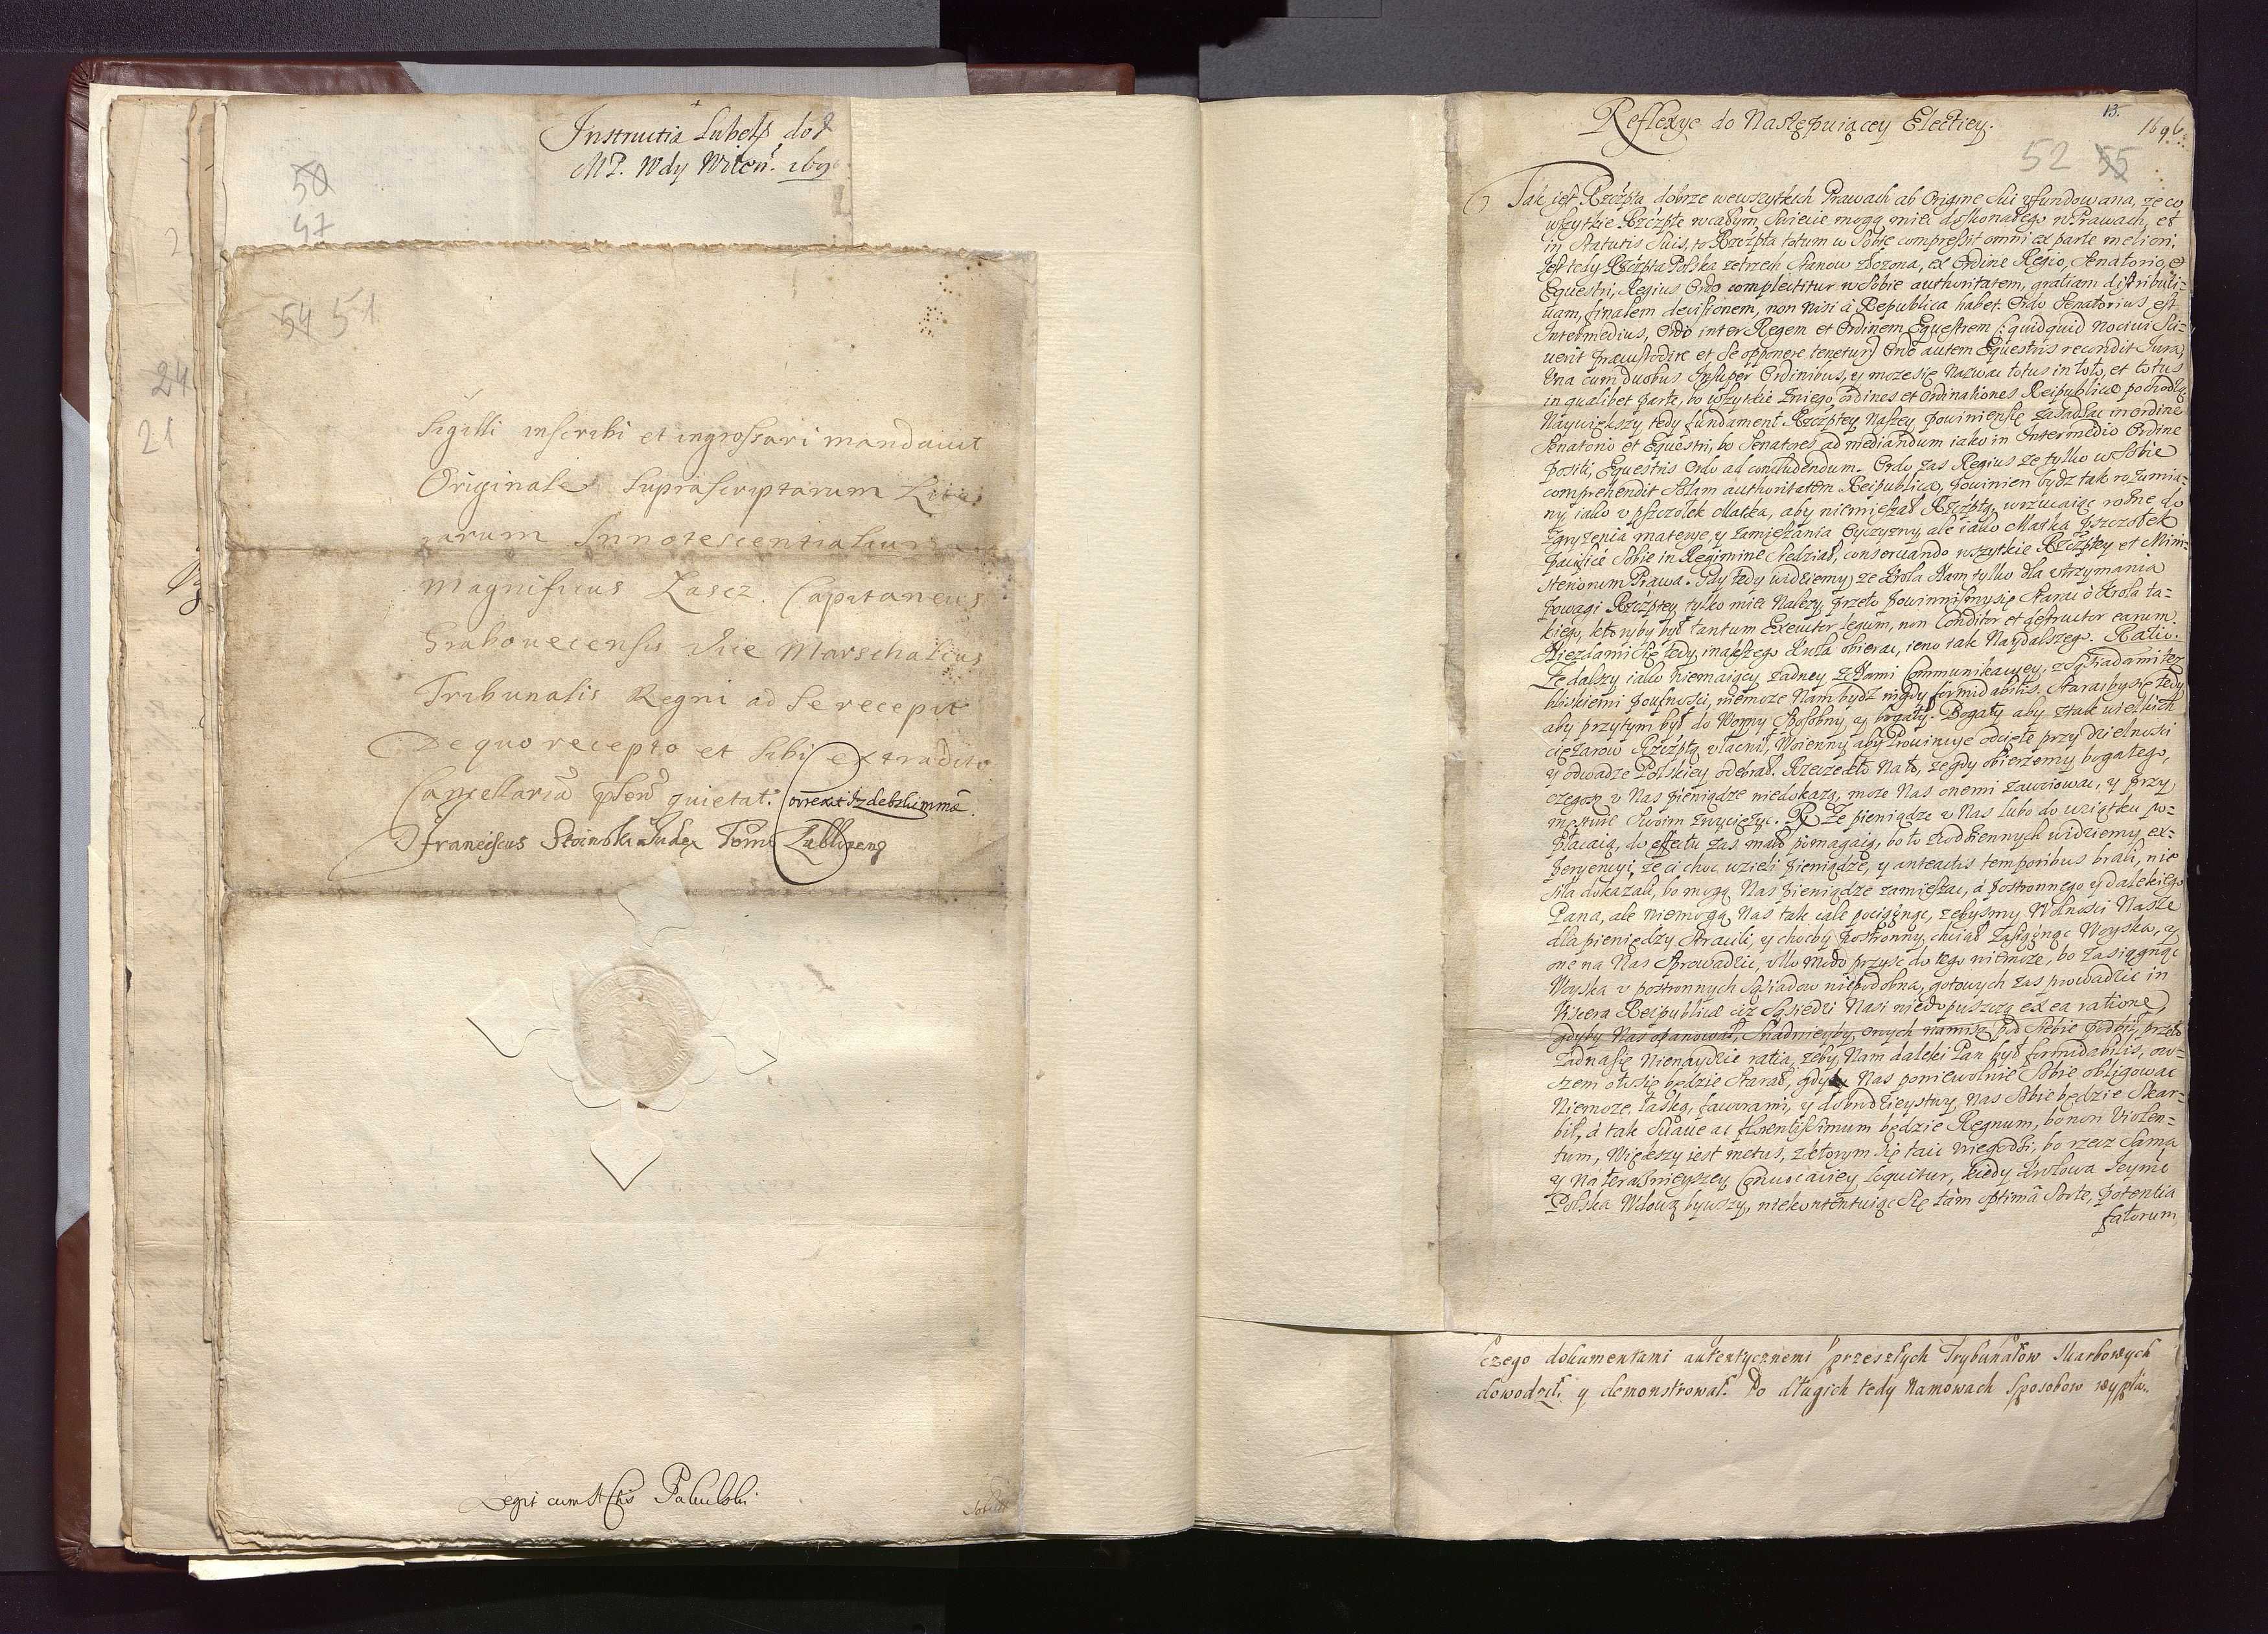 Instructia Lubels. do
MP. Wdy Witeń. 169
50
47
54 51
24
21
Sigilli inscribi et ingrossari mandavit
Originale Suprascriptarum
Innotescentialium
Magnificus Łascz Capitaneus
Grabovecensis Vice Marschalcus
Tribunalis Regni ad Se recepit
De quo recepto et Sibi extradito
Cancellariā quietat.
Franciscus Judex
Legit cum
Reflexye do Następuiącey Electiey.
13.
1696
52 55
Tak jest Rzeczpta dobrze wewszytkich Prawach ab Origine Sui vfundowana, ze co
wszytkie Rzeczpte wcałym Swiecie mogą miec doskonałego w Prawach, et
in Statutis Suis, to Rzeczpta totum w Sobie compressit omni ex parte meliori.
Jest tedy Rzeczpta Polska ze trzech Stanow złozona, ex Ordine Regio, Senatorio, et
Equestri, Regius Ordo complectitur w Sobie authoritatem, gratiam distributi=
uam, finalem decisionem, non nisi à Republica habet. Ordo Senatorius est
Intermedius, Ordo inter Regem et Ordinem Equestrem (: quidquid nociui Sci=
uerit præcustodire et Se opponere tenetur) Ordo autem Equestris recondit Jura,
Vna cum duobus Insuper Ordinibus, y moze się Nazwac totus in toto, et totus
in qualibet parte, bo wszytkie zniego ordines et Ordinationes Reipublicæ pochodzą
Naywiększy tedy fundament Rzeczptey Naszey powinien się zasadzac in ordine
Senatorio et Equestri, bo Senatores ad mediandum iako in Intermedio Ordine
positi, Equestris Ordo ad concludendum. Ordo zas Regius ze tylko w Sobie
comprehendit Solam authoritatem Reipublicæ, powinien bydz tak rozumia=
ny iako v pszczołek Matka, aby niemięszał Rzeczptą, wrzucaiąc rozne do
zgryzenia materye, y zamięszania Oyczyzny, ale iako Matka pszczołek
Sobie in Regimine Siedział, conseruando wszytkie Rzeczptey et Mini=
steriorum Prawa. Gdy tedy widziemy, ze Krola Nam tylko dla vtrzymania
powagi Rzeczptey tylko miec Nalezy, przeto powinnismy się Starac o Krola ta=
kiego, ktoryby był tantum Executor legum, non Conditor et destructor earum.
Niezda mi się tedy inakszego Krola obierac, ieno iak Naydalszego. Ratio.
Ze dalszy iako niemaiący zadney z Nami Communikacyey, z Sąsiadami tez
bliskiemi poufności, niemoze Nam bydz nigdy formidabilis. Starac by się tedy
aby przytym był do Woyny Sposobny y bogaty. Bogaty aby ztak wielkich
cięzarow Rzeczptą vlacnił, Woienny aby Prowincye odcięte przy dzielnosci
y odwadze Polskiey odebrał. Rzecze kto na to, ze gdy obierzemy bogatego,
czegosz v Nas pieniądze niedokazą, moze Nas onemi zawoiowac, y przy
męstwie Swoim zwycięzyc. Rx Ze pieniądze v Nas lubo do wziątku po=
płacaią, do effectu zas mało pomagaią, bo to z codziennych widziemy ex=
peryencyi, ze ci choc wzieli pieniądze, y anteactis temporibus brali, nic
siła dokazali, bo mogą Nas pieniądze zamięszac, à postronnego y dalekiego
Pana, ale niemogą Nas tak cale pociągnąc, zebysmy Wolnosci Nasze
dla pieniędzy Stracili, y chocby postronny chciał zasięgnąc Woyska, y
one na Nas Sprowadzic, vllo modo przysc do tego niemoze, bo zasięgnąc
Woyska v postronnych Sąsiadow niepodobna, gotowych zas prowadzic in
Viscera Reipublicæ ciz Sąsiedzi Nasi niedopuszczą ex ea ratione,
gdyby Nas opanował, Snadnieyby onych nami pod Siebie podbił, przeto
zadna się Nienaydzie ratia, zeby Nam daleki Pan był formidabilis, ow=
szem oto się będzie Starał, gdy Nas poniewolnie Sobie obligowac
Niemoze, łaską, faworami, y dobrodzieystwy Nas Sobie będzie Skar=
bił, à tak Suaue ac florentissimum będzie Regnum, bo non Violen=
tum, Większy iest metus, z ktorym się taic niegodzi, bo rzecz Sama
y Na teraznieyszey Conuocaciey loquitur, kiedy Krolowa Jeymc
Polska Wdową bywszy, niekontentuiąc Się tàm optimâ Sorte, potentia
fatorum,
czego dokumentami autentycznemi przeszłych Trybunałow Skarbowych
dowodził, y demonstrował. Po długich tedy Namowach Sposobow wypła..